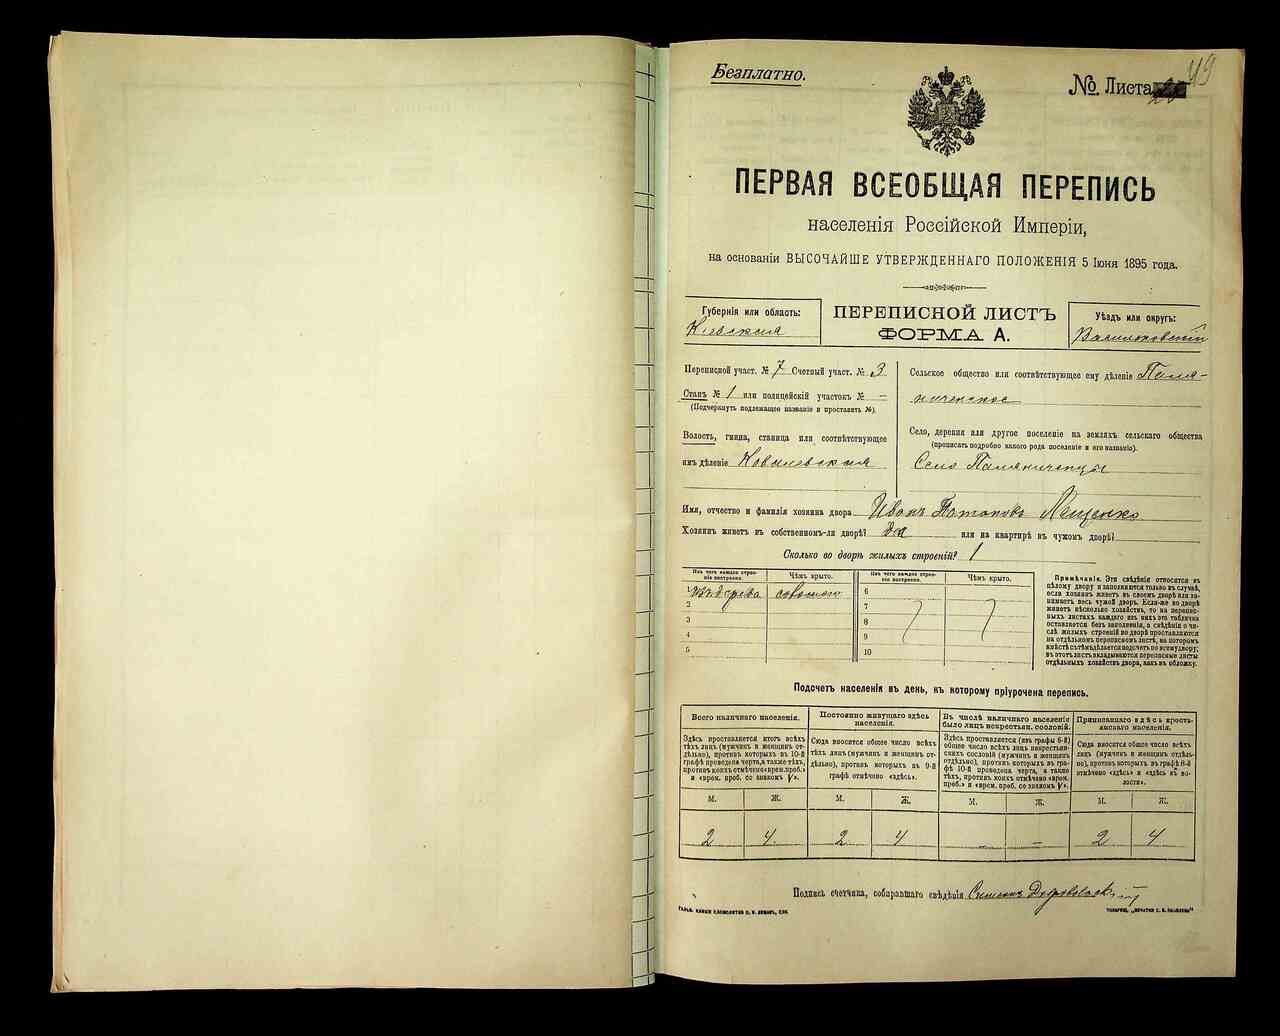 Безплатно.
№. Листа 49
ПЕРВАЯ ВСЕОБЩАЯ ПЕРЕПИСЬ
населенія Россійской Имперіи,
на основаніи ВЫСОЧАЙШЕ УТВЕРЖДЕННАГО ПОЛОЖЕНІЯ 5 Іюня 1895 года.
Губернія или область:
Кіевская
ПЕРЕПИСНОЙ ЛИСТЪ
ФОРМА А.
Уѣздъ или округъ:
Васильковскій
Переписной участ. № 7 Счетный участ. № 3
Станъ № 1 или полицейскій участокъ № —
(Подчеркнуть подлежащее названіе и проставить №).
Волость, гмина, станица или соотвѣтствующее
имъ дѣленіе
Сельское общество или соотвѣтствующее ему дѣленіе Паля-
ниченское
Село, деревня или другое поселеніе на земляхъ сельскаго общества
(прописать подробно какого рода поселеніе и его названіе).
Село Паляниченцы
Имя, отчество и фамилія хозяина двора Иванъ Потаповъ Лещенко
Хозяинъ живетъ въ собственномъ-ли дворѣ? да или на квартирѣ въ чужомъ дворѣ?
Сколько во дворѣ жилыхъ строеній? 1
Изъ чего каждое строе-
ніе построено.
Чѣмъ крыто.
1 изъ дерева соломою
2
3
4
5
Изъ чего каждое строе-
ніе построено.
Чѣмъ крыто.
6
7
8
9
10
Примѣчаніе. Эти свѣдѣнія относятся къ
цѣлому двору и заполняются только въ случаѣ,
если хозяинъ живетъ въ своемъ дворѣ или за-
нимаетъ весь чужой дворъ. Если-же во дворѣ
живетъ нѣсколько хозяйствъ, то на перепис-
ныхъ листахъ каждаго изъ нихъ эта табличка
оставляется безъ заполненія, а свѣдѣнія о чи-
слѣ жилыхъ строеній во дворѣ проставляются
на отдѣльномъ переписномъ листѣ, на которомъ
вмѣстѣ съ тѣмъ дѣлается подсчетъ по всему двору;
въ этотъ листъ вкладываются переписные листы
отдѣльныхъ хозяйствъ двора, какъ въ обложку.
Подсчетъ населенія въ день, къ которому пріурочена перепись.
Всего наличнаго населенія.
Здѣсь проставляется итогъ всѣхъ
тѣхъ лицъ (мужчинъ и женщинъ от-
дѣльно), противъ которыхъ въ 10-й
графѣ проведена черта, а также тѣхъ,
противъ коихъ отмѣчено «врем. проб.»
и «врем. преб. со знакомъ V».
М. Ж.
2 4
Постоянно живущаго здѣсь
населенія.
Сюда вносится общее число всѣхъ
тѣхъ лицъ (мужчинъ и женщинъ от-
дѣльно), противъ которыхъ въ 9-й
графѣ отмѣчено «здѣсь».
М. Ж.
2 4
Въ числѣ наличнаго населенія
было лицъ некрестьян. сословій.
Здѣсь проставляется (изъ графы 6-й)
общее число всѣхъ лицъ некрестьян-
скихъ сословій (мужчинъ и женщинъ
отдѣльно), противъ которыхъ въ гра-
фѣ 10-й проведена черта, а также
тѣхъ, противъ коихъ отмѣчено «врем.
преб.» и «врем. преб. со знакомъ V».
М. Ж.
— —
Приписаннаго здѣсь кресть-
янскаго населенія.
Сюда вносится общее число всѣхъ
лицъ (мужчинъ и женщинъ отдѣль-
но), противъ которыхъ въ графѣ 8-й
отмѣчено «здѣсь» и «здѣсь въ во-
лости».
М. Ж.
2 4
Подпись счетчика, собиравшаго свѣдѣнія